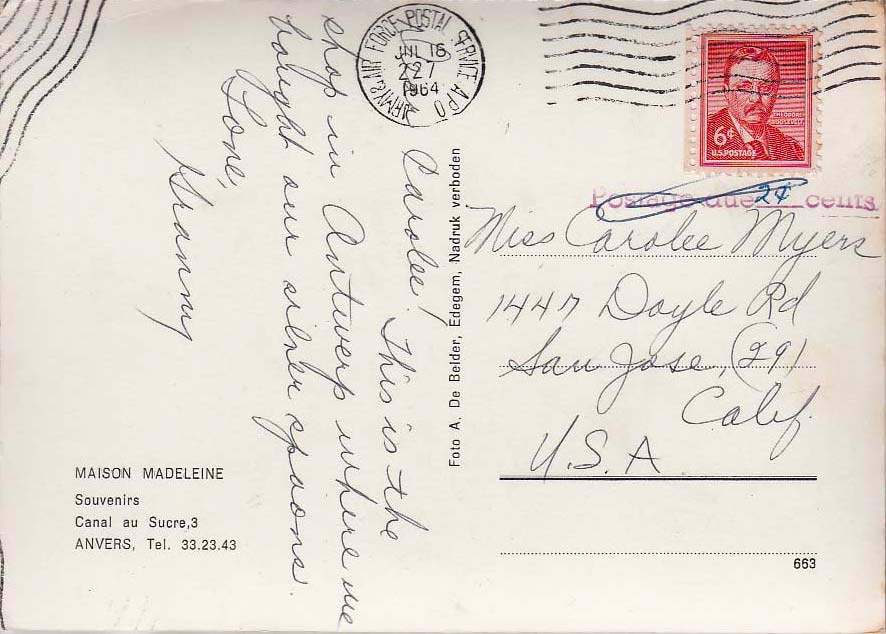 ARMY & AIR FORCE POSTAL SERVICE A.P.O.
JUL 16
227
1964
THEODORE
ROOSEVELT
6¢
U.S. POSTAGE
Postage due 2¢ cents
Carolee! This is the
shop in Antwerp where we
bought our silver spoons.
Love,
Granny
Miss Carolee Myers
1447 Doyle Rd
San Jose, (29)
Calif.
U.S.A
Foto A. De Belder, Edegem, Nadruk verboden
MAISON MADELEINE
Souvenirs
Canal au Sucre,3
ANVERS, Tel. 33.23.43
663